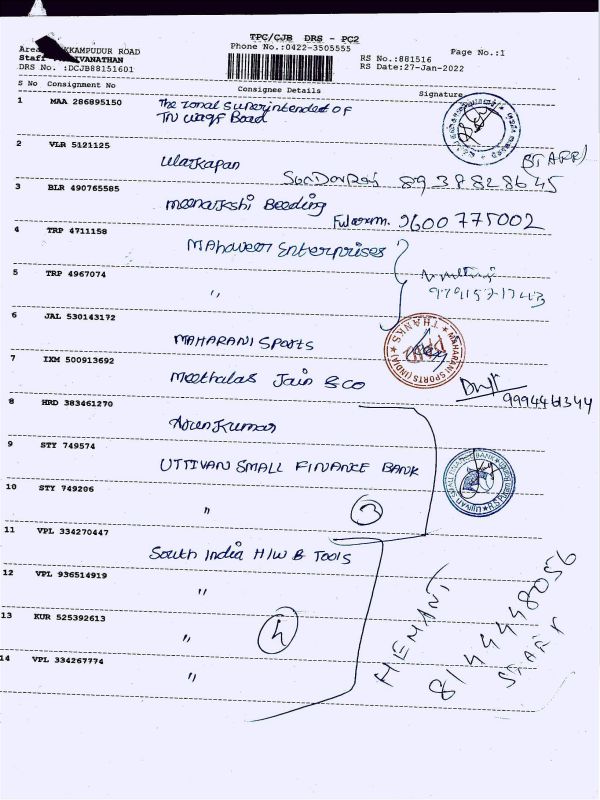 TPC/CJB DRS - PC2
KKAMPUDUR ROAD
Phone No.:0422-3505555
Page No.:1
Staff
IVANATHAN
RS No.:881516
DRS No. :DCJB88151601
RS Date:27-Jan-2022
S No Consignment No Consignee Details Signature
1 MAA 286895150 The zonal Superintended of
TN waqf Board
2 VLR 5121125 (STAFF)
Ulaikapan SunDarRaj 8937828645
3 BLR 490765585 meenakshi Beeding
9600775002
4 TRP 4711158 MAhaveer Enterprises
5 TRP 4967074 "
6 JAL 530143172 MAHARANI SPorts
MAHARANI SPORTS (INDIA)
THANKS
7 IXM 500913692 Meethalas Jain & co
9994461344
8 HRD 383461270 Arun Kumar
9 STY 749574 UTTIVAN SMALL FINANCE BANK
10 STY 749206 " 3
11 VPL 334270447 South India H/W & Tools
12 VPL 936514919 "
13 KUR 525392613 " 4
14 VPL 334267774 "
HEMANT
8144448056
STAFF